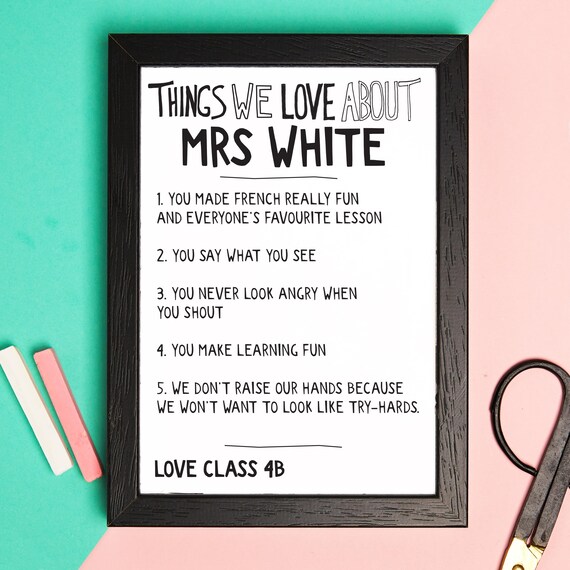 THINGS WE LOVE ABOUT
MRS WHITE
1. YOU MADE FRENCH REALLY FUN
AND EVERYONE'S FAVOURITE LESSON
2. YOU SAY WHAT YOU SEE
3. YOU NEVER LOOK ANGRY WHEN
YOU SHOUT
4. YOU MAKE LEARNING FUN
5. WE DON'T RAISE OUR HANDS BECAUSE
WE WON'T WANT TO LOOK LIKE TRY-HARDS.
LOVE CLASS 4B